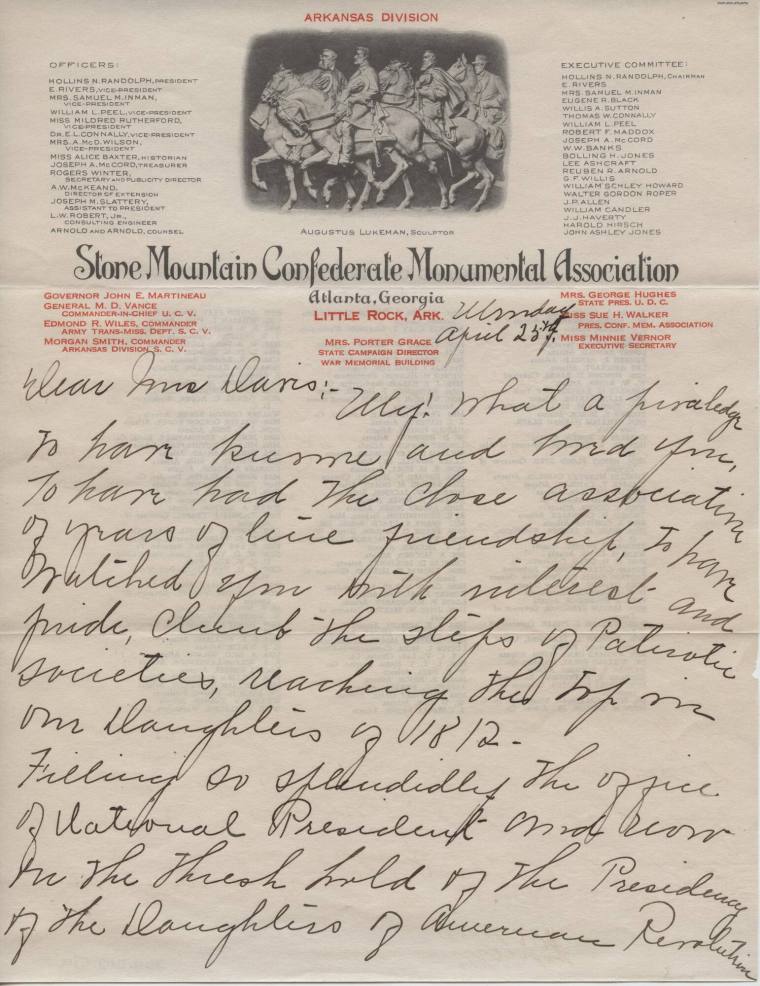 ARKANSAS DIVISION
OFFICERS:
HOLLINS N. RANDOLPH, PRESIDENT
E. RIVERS, VICE-PRESIDENT
MRS. SAMUEL M. INMAN,
VICE-PRESIDENT
WILLIAM L. PEEL, VICE-PRESIDENT
MISS MILDRED RUTHERFORD,
VICE-PRESIDENT
DR. E. L. CONNALLY, VICE-PRESIDENT
MRS. A. McD. WILSON,
VICE-PRESIDENT
MISS ALICE BAXTER, HISTORIAN
JOSEPH A. McCORD, TREASURER
ROGERS WINTER,
SECRETARY AND PUBLICITY DIRECTOR
A. W. McKEAND,
DIRECTOR OF EXTENSION
JOSEPH M. SLATTERY,
ASSISTANT TO PRESIDENT
L. W. ROBERT, JR.,
CONSULTING ENGINEER
ARNOLD AND ARNOLD, COUNSEL
AUGUSTUS LUKEMAN, SCULPTOR
EXECUTIVE COMMITTEE:
HOLLINS N. RANDOLPH, CHAIRMAN
E. RIVERS
MRS. SAMUEL M. INMAN
EUGENE R. BLACK
WILLIS A. SUTTON
THOMAS W. CONNALLY
WILLIAM L. PEEL
ROBERT F. MADDOX
JOSEPH A. McCORD
W. W. BANKS
BOLLING H. JONES
LEE ASHCRAFT
REUBEN R. ARNOLD
G. F. WILLIS
WILLIAM SCHLEY HOWARD
WALTER GORDON ROPER
J. P. ALLEN
WILLIAM CANDLER
J. J. HAVERTY
HAROLD HIRSCH
JOHN ASHLEY JONES
Stone Mountain Confederate Monumental Association
Atlanta, Georgia
LITTLE ROCK, ARK.
GOVERNOR JOHN E. MARTINEAU
GENERAL M. D. VANCE
COMMANDER-IN-CHIEF U. C. V.
EDMOND R. WILES, COMMANDER
ARMY TRANS-MISS. DEPT. S. C. V.
MORGAN SMITH, COMMANDER
ARKANSAS DIVISION S. C. V.
MRS. PORTER GRACE
STATE CAMPAIGN DIRECTOR
WAR MEMORIAL BUILDING
MRS. GEORGE HUGHES
STATE PRES. U. D. C.
MISS SUE H. WALKER
PRES. CONF. MEM. ASSOCIATION
MISS MINNIE VERNOR
EXECUTIVE SECRETARY
Monday
April 23rd,
Dear Mrs Davis:-
My! What a privaledge
to have known and loved you,
To have had the close association
of years of fine friendship, to have
watched you with interest and
pride, climb the steps of Patriotic
societies, reaching the top in
our Daughters of 1812-
Filling so splendidly the office
of National President and now
on the thresh hold of the Presidency
of the Daughters of American Revolution